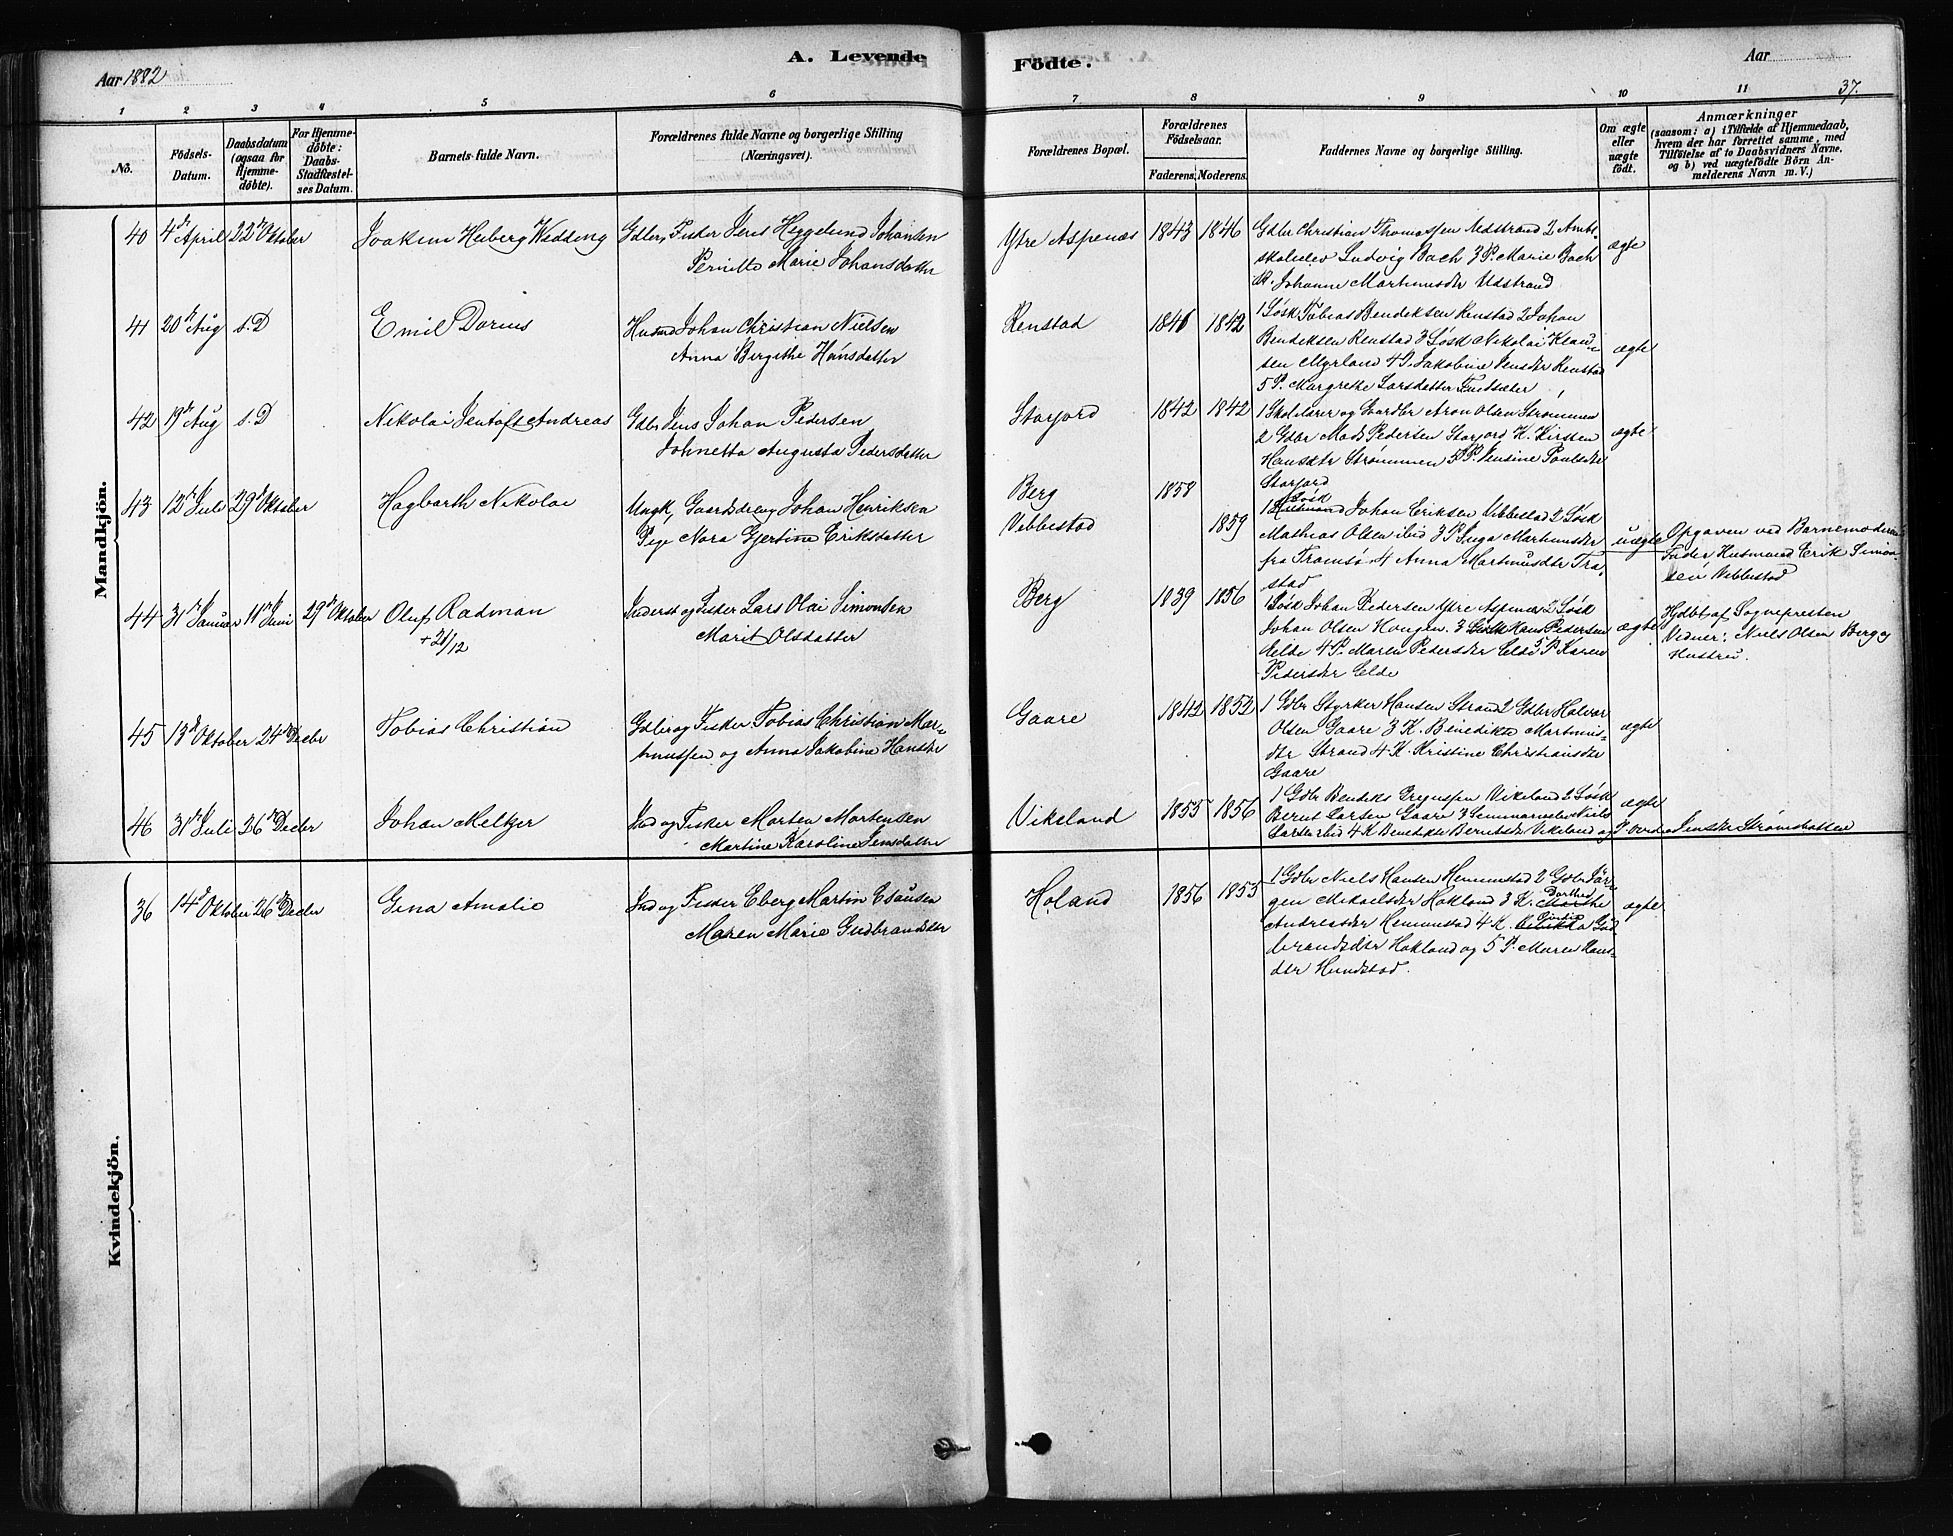 Aar 1882
A. Levende
Födte.
Aar
37.
1 2 3 4 5 6 7 8 9 10 11
No.
Födsels-
Datum.
Daabsdatum
(ogsaa for
Hjemme-
döbte).
For Hjemme-
döbte:
Daabs-
Stadfæstel-
ses Datum.
Barnets fulde Navn.
Forældrenes fulde Navne og borgerlige Stilling
(Næringsvei).
Forældrenes Bopæl.
Forældrenes
Födselsaar.
Faderens. Moderens.
Faddernes Navne og borgerlige Stilling.
Om ægte
eller
uægte
födt.
Anmærkninger
(saasom: a) i Tilfælde af Hjemmedaab,
hvem der har forrettet samme, med
Tilföielse af to Daabsvidners Navne,
og b) ved uægtefödte Börn An-
melderens Navn m. V.)
Mandkjön.
40 4de April 22de Oktober Joakim Heiberg Wedding Gdbr, Fisker Jens Heggelund Johansen
Pernille Marie Johansdatter
Ytre Aspenæs 1843 1846 Gdbr Christian Thomassen Nedstrand 2 Amts-
skoleelev Ludvig Bach 3 P. Marie Bach
K. Johanne Martinusdtr
ægte
41 20de Aug s.D Emil Dorius Husmd Johan Christian Nielsen
Anna Bergithe Hansdatter
Renstad 1846 1842 1 Løsk Tobias Bendiksen Renstad 2 Johan
Bendiksen Renstad 3 Løsk Nikolai Klau-
sen Myrland 4 P. Jakobine Jensdtr Renstad
5 P. Margrethe Larsdatter
ægte
42 19de Aug s.D Nikolai Jentoft Andreas Gdbr Jens Johan Pedersen
Johnetta Augusta Pedersdatter
Storjord 1842 1842 1 Skolelærer og Gaardbr Aron Olsen Strømmen
2 Gdbr Mads Pedersen Storjord K. Kirsten
Hansdtr Strømmen 5 P. Jensine Paulsdtr
Storjord
ægte
43 12te Juli 29de Oktober Hagbarth Nikolai Ungk, Gaardsdreng Johan Henriksen
Pige Nora Gjertine Eriksdatter
Berg 1858
Vebbestad 1859
Løsk
1 Husmand Johan Eriksen Vebbestad 2 Løsk
Mathias Olsen ibid 3 P. Inga Martinusdtr
fra Tromsø 4 Anna Martinusdtr Tra-
stad
uægte Opgaven ved Barnemoderens
Fader Husmand Erik Simon-
sen Vebbestad
44 31te Januar 11te Juni 29de Oktober Oluf Radman
+ 21/12
Inderst og Fisker Lars Olai Simonsen
Marit Olsdatter
Berg 1839 1856 1 Løsk Johan Pedersen Ytre Aspenæs 2 Løsk
Johan Olsen Haugen. 3 Løsk Hans Pedersen
Elde 4 P. Maren Pedersdtr Elde 5 P Karen
Pedersdtr Elde
ægte Hjdbt af Sognepresten
Vidner: Niels Olsen Berg og
Hustru.
45 13de Oktober 24de Decbr Tobias Christian Gdbr og Fisker Tobias Christian Mar-
tinussen og Anna Jakobine Hansdtr
Gaare 1842 1852 1 Gdbr Styrker Hansen Strand 2 Gdbr Halvor
Olsen Gaare 3 K. Benedikte Martinus-
dtr Strand 4 K. Kristine Christiansdtr
Gaare
ægte
46 31te Juli 26de Decbr Johan Meltzer Ind og Fisker Morten Mortensen
Martine Karoline Jensdatter
Vikeland 1855 1856 1 Gdbr Bendiks Gregussen Vikeland 2 Løsk
Bernt Larsen Gaare 3 Seminarielev Niels
Larsen ibid 4 K Benedikte Berntsdtr Vikeland og
ægte
Strømsbotten
Kvindekjön.
36 14de Oktober 26de Decbr Gina Amalie Ind og Fisker Eberg Martin Esausen
Maren Marie Gudbrandsdtr
Holand 1856 1855 1 Gdbr Niels Hansen Hemmestad 2 Gdbr Jör-
gen Mikaelsdtr Hokland 3 K. Marthe
Dorthea
Andreasdtr Hemmestad 4 K. Gud-
brandsdtr Hokland og 5 P. Maren Hans-
dtr Hundstad.
ægte